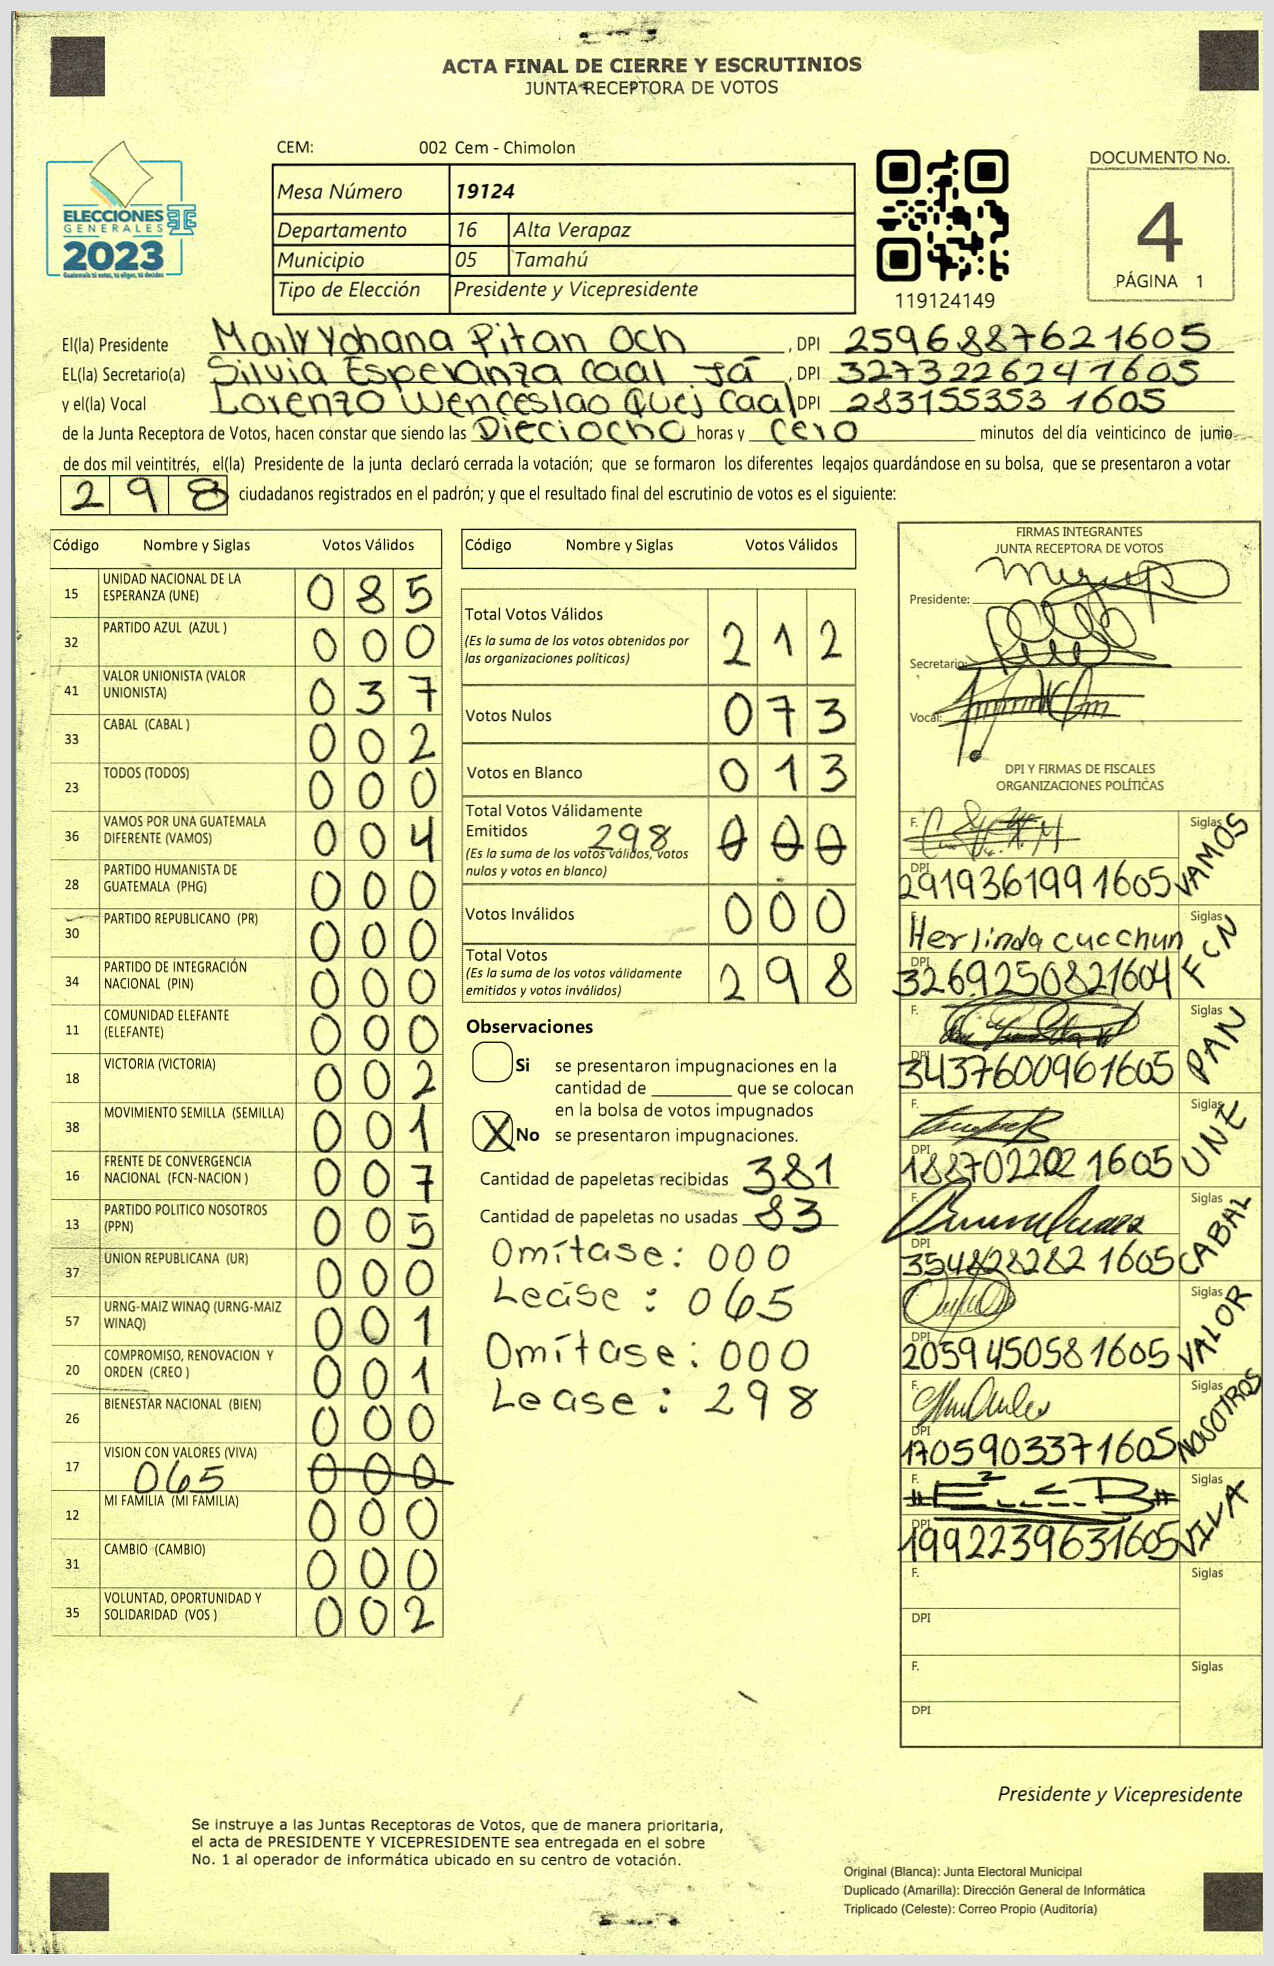 ACTA FINAL DE CIERRE Y ESCRUTINIOS
JUNTA RECEPTORA DE VOTOS
ELECCIONES
GENERALES
2023
Guatemala tú votas, tú eliges, tú decides
CEM: 002 Cem - Chimolon
Mesa Número 19124
Departamento 16 Alta Verapaz
Municipio 05 Tamahú
Tipo de Elección Presidente y Vicepresidente
119124149
DOCUMENTO No.
4
PÁGINA 1
El(la) Presidente Maily Yohana Pitan Och, DPI 2596887621605
EL(la) Secretario(a) Silvia Esperanza Caal Já, DPI 3273226241605
y el(la) Vocal Lorenzo Wenceslao Quej Caal DPI 283155353 1605
de la Junta Receptora de Votos, hacen constar que siendo las Dieciocho horas y cero minutos del día veinticinco de junio
de dos mil veintitrés, el(la) Presidente de la junta declaró cerrada la votación; que se formaron los diferentes legajos guardándose en su bolsa, que se presentaron a votar
298 ciudadanos registrados en el padrón; y que el resultado final del escrutinio de votos es el siguiente:
Código Nombre y Siglas Votos Válidos
15 UNIDAD NACIONAL DE LA ESPERANZA (UNE) 085
32 PARTIDO AZUL (AZUL ) 000
41 VALOR UNIONISTA (VALOR UNIONISTA) 037
33 CABAL (CABAL ) 002
23 TODOS (TODOS) 000
36 VAMOS POR UNA GUATEMALA DIFERENTE (VAMOS) 004
28 PARTIDO HUMANISTA DE GUATEMALA (PHG) 000
30 PARTIDO REPUBLICANO (PR) 000
34 PARTIDO DE INTEGRACIÓN NACIONAL (PIN) 000
11 COMUNIDAD ELEFANTE (ELEFANTE) 000
18 VICTORIA (VICTORIA) 002
38 MOVIMIENTO SEMILLA (SEMILLA) 001
16 FRENTE DE CONVERGENCIA NACIONAL (FCN-NACION ) 007
13 PARTIDO POLITICO NOSOTROS (PPN) 005
37 UNION REPUBLICANA (UR) 000
57 URNG-MAIZ WINAQ (URNG-MAIZ WINAQ) 001
20 COMPROMISO, RENOVACION Y ORDEN (CREO ) 001
26 BIENESTAR NACIONAL (BIEN) 000
17 VISION CON VALORES (VIVA) 065 000
12 MI FAMILIA (MI FAMILIA) 000
31 CAMBIO (CAMBIO) 000
35 VOLUNTAD, OPORTUNIDAD Y SOLIDARIDAD (VOS ) 002
Código Nombre y Siglas Votos Válidos
Total Votos Válidos 212
(Es la suma de los votos obtenidos por
las organizaciones políticas)
Votos Nulos 073
Votos en Blanco 013
Total Votos Válidamente
Emitidos 298 000
(Es la suma de los votos válidos, votos
nulos y votos en blanco)
Votos Inválidos 000
Total Votos 298
(Es la suma de los votos válidamente
emitidos y votos inválidos)
Observaciones
Si se presentaron impugnaciones en la
cantidad de ________ que se colocan
en la bolsa de votos impugnados
X No se presentaron impugnaciones.
Cantidad de papeletas recibidas 381
Cantidad de papeletas no usadas 83
Omítase: 000
Lease : 065
Omítase: 000
Lease : 298
FIRMAS INTEGRANTES
JUNTA RECEPTORA DE VOTOS
Presidente:
Secretario:
Vocal:
DPI Y FIRMAS DE FISCALES
ORGANIZACIONES POLÍTICAS
F. Siglas VAMOS
DPI 2919361991605
F. Herlinda cucchun Siglas FCN
DPI 3269250821604
F. Siglas PAN
DPI 3437600961605
F. Siglas UNE
DPI 188702202 1605
F. Siglas CABAL
DPI 354828282 1605
F. Siglas VALOR
DPI 2059450581605
F. Siglas NOSOTROS
DPI 1705903371605
F. Siglas VIVA
DPI 1992239631605
F. Siglas
DPI
F. Siglas
DPI
Presidente y Vicepresidente
Se instruye a las Juntas Receptoras de Votos, que de manera prioritaria,
el acta de PRESIDENTE Y VICEPRESIDENTE sea entregada en el sobre
No. 1 al operador de informática ubicado en su centro de votación.
Original (Blanca): Junta Electoral Municipal
Duplicado (Amarilla): Dirección General de Informática
Triplicado (Celeste): Correo Propio (Auditoría)